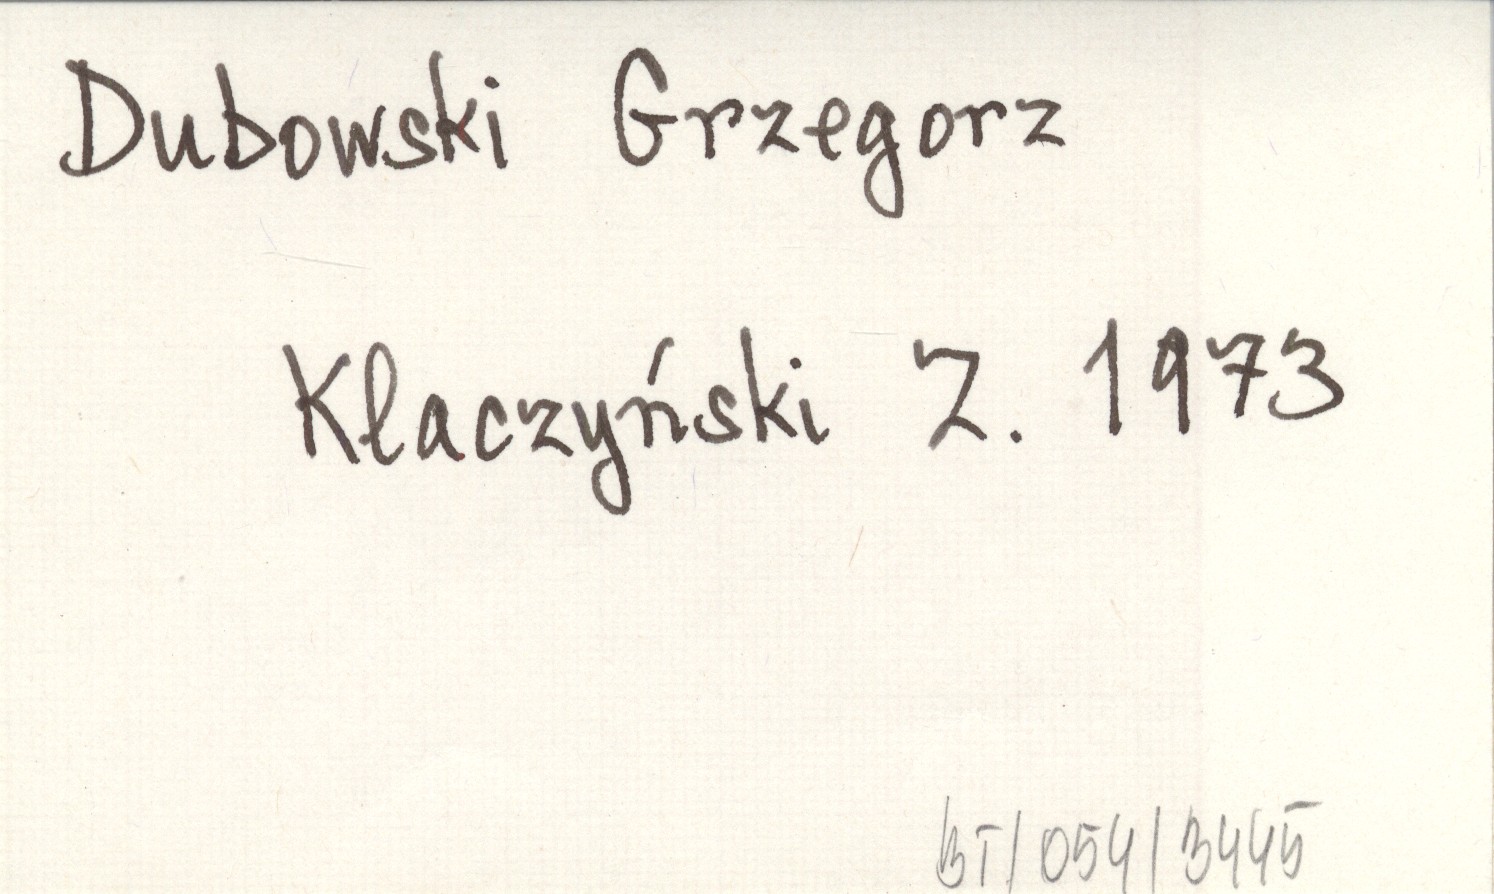 Dubowski Grzegorz
Klaczyński Z. 1973
BT/054/3445